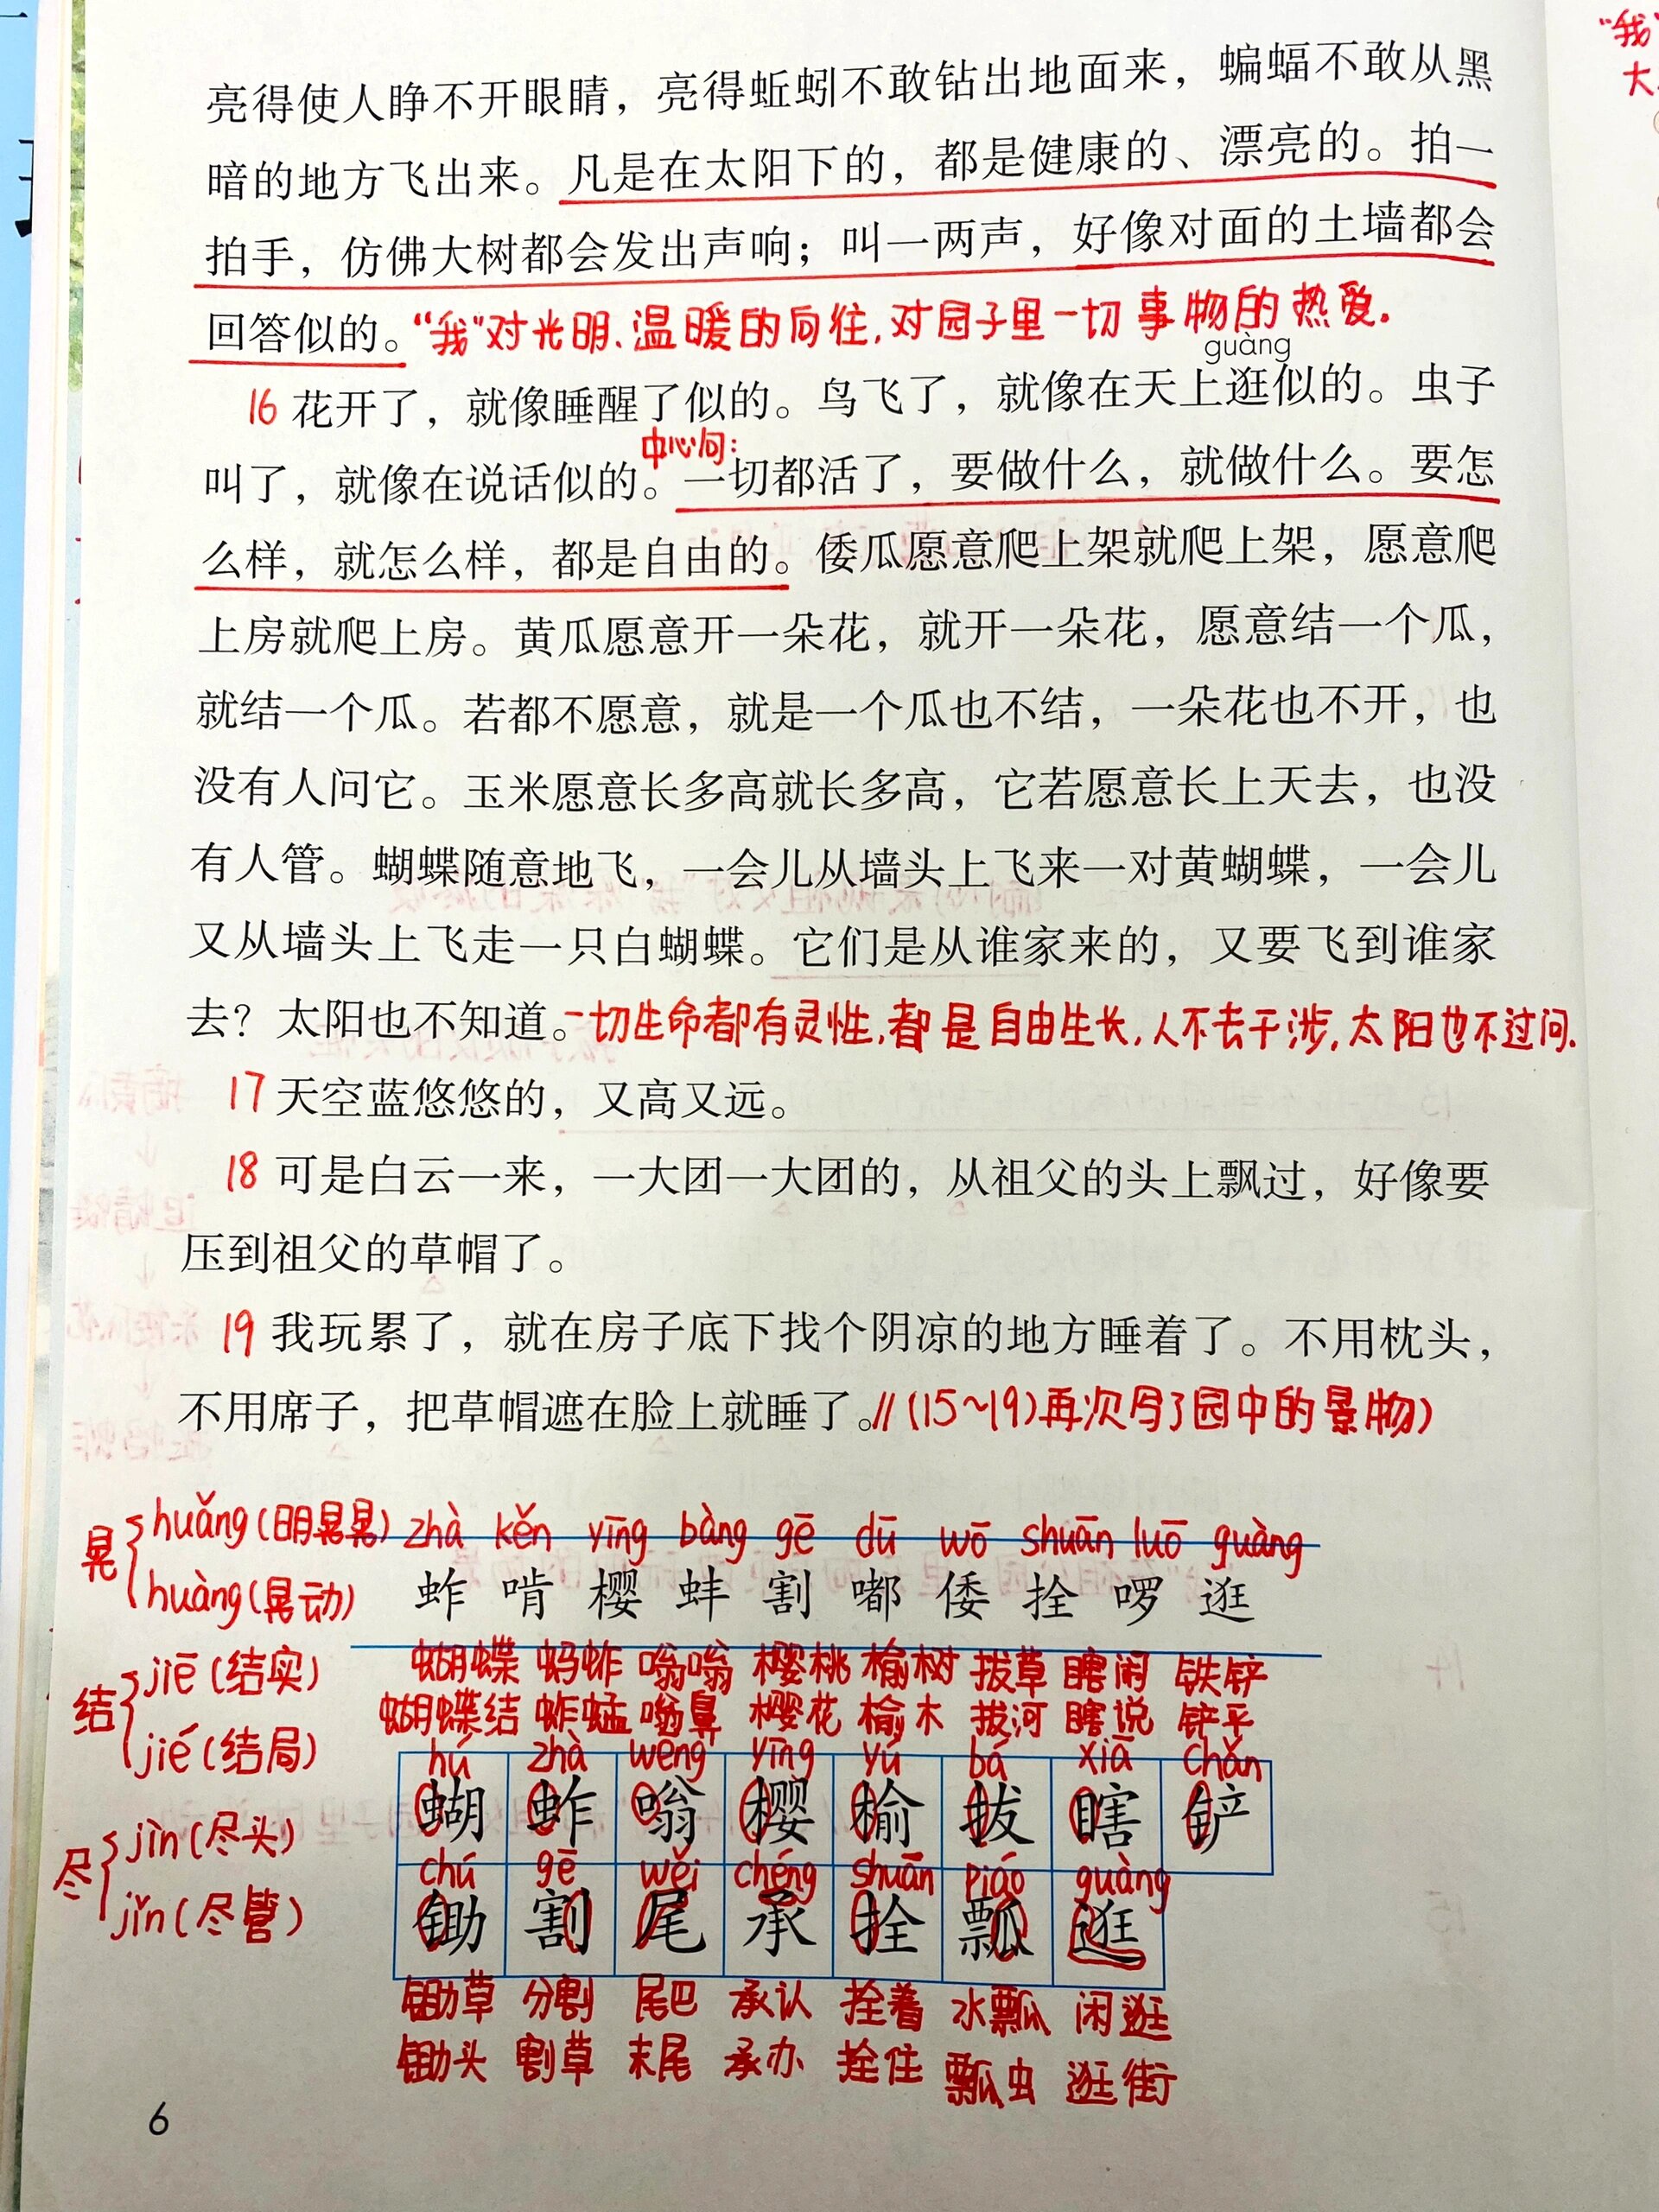 亮得使人睁不开眼睛，亮得蚯蚓不敢钻出地面来，蝙蝠不敢从黑
暗的地方飞出来。凡是在太阳下的，都是健康的、漂亮的。拍一
拍手，仿佛大树都会发出声响；叫一两声，好像对面的土墙都会
回答似的。“我”对光明、温暖的向往，对园子里一切事物的热爱.
guàng
16 花开了，就像睡醒了似的。鸟飞了，就像在天上逛似的。虫子
中心句：
叫了，就像在说话似的。一切都活了，要做什么，就做什么。要怎
么样，就怎么样，都是自由的。倭瓜愿意爬上架就爬上架，愿意爬
上房就爬上房。黄瓜愿意开一朵花，就开一朵花，愿意结一个瓜，
就结一个瓜。若都不愿意，就是一个瓜也不结，一朵花也不开，也
没有人问它。玉米愿意长多高就长多高，它若愿意长上天去，也没
有人管。蝴蝶随意地飞，一会儿从墙头上飞来一对黄蝴蝶，一会儿
又从墙头上飞走一只白蝴蝶。它们是从谁家来的，又要飞到谁家
去？太阳也不知道。一切生命都有灵性，都是自由生长，人不去干涉，太阳也不过问.
17 天空蓝悠悠的，又高又远。
18 可是白云一来，一大团一大团的，从祖父的头上飘过，好像要
压到祖父的草帽了。
19 我玩累了，就在房子底下找个阴凉的地方睡着了。不用枕头，
不用席子，把草帽遮在脸上就睡了。//(15~19)再次写了园中的景物)
晃 huǎng(明晃晃)
huàng(晃动)
结 jiē(结实)
jié(结局)
尽 jìn(尽头)
jǐn(尽管)
zhà kěn yīng bàng gē dū wō shuān luō guàng
蚱 啃 樱 蚌 割 嘟 倭 拴 啰 逛
蝴蝶 蚂蚱 嗡嗡 樱桃 榆树 拔草 瞎闹 铁铲
蝴蝶结 蚱蜢 嗡鼻 樱花 榆木 拔河 瞎说 铲平
hú zhà wēng yīng yú bá xiā chǎn
蝴 蚱 嗡 樱 榆 拔 瞎 铲
chú gē wěi chéng shuān piáo guàng
锄 割 尾 承 拴 瓢 逛
锄草 分割 尾巴 承认 拴着 水瓢 闲逛
锄头 割草 末尾 承办 拴住 瓢虫 逛街
6
“我”
大